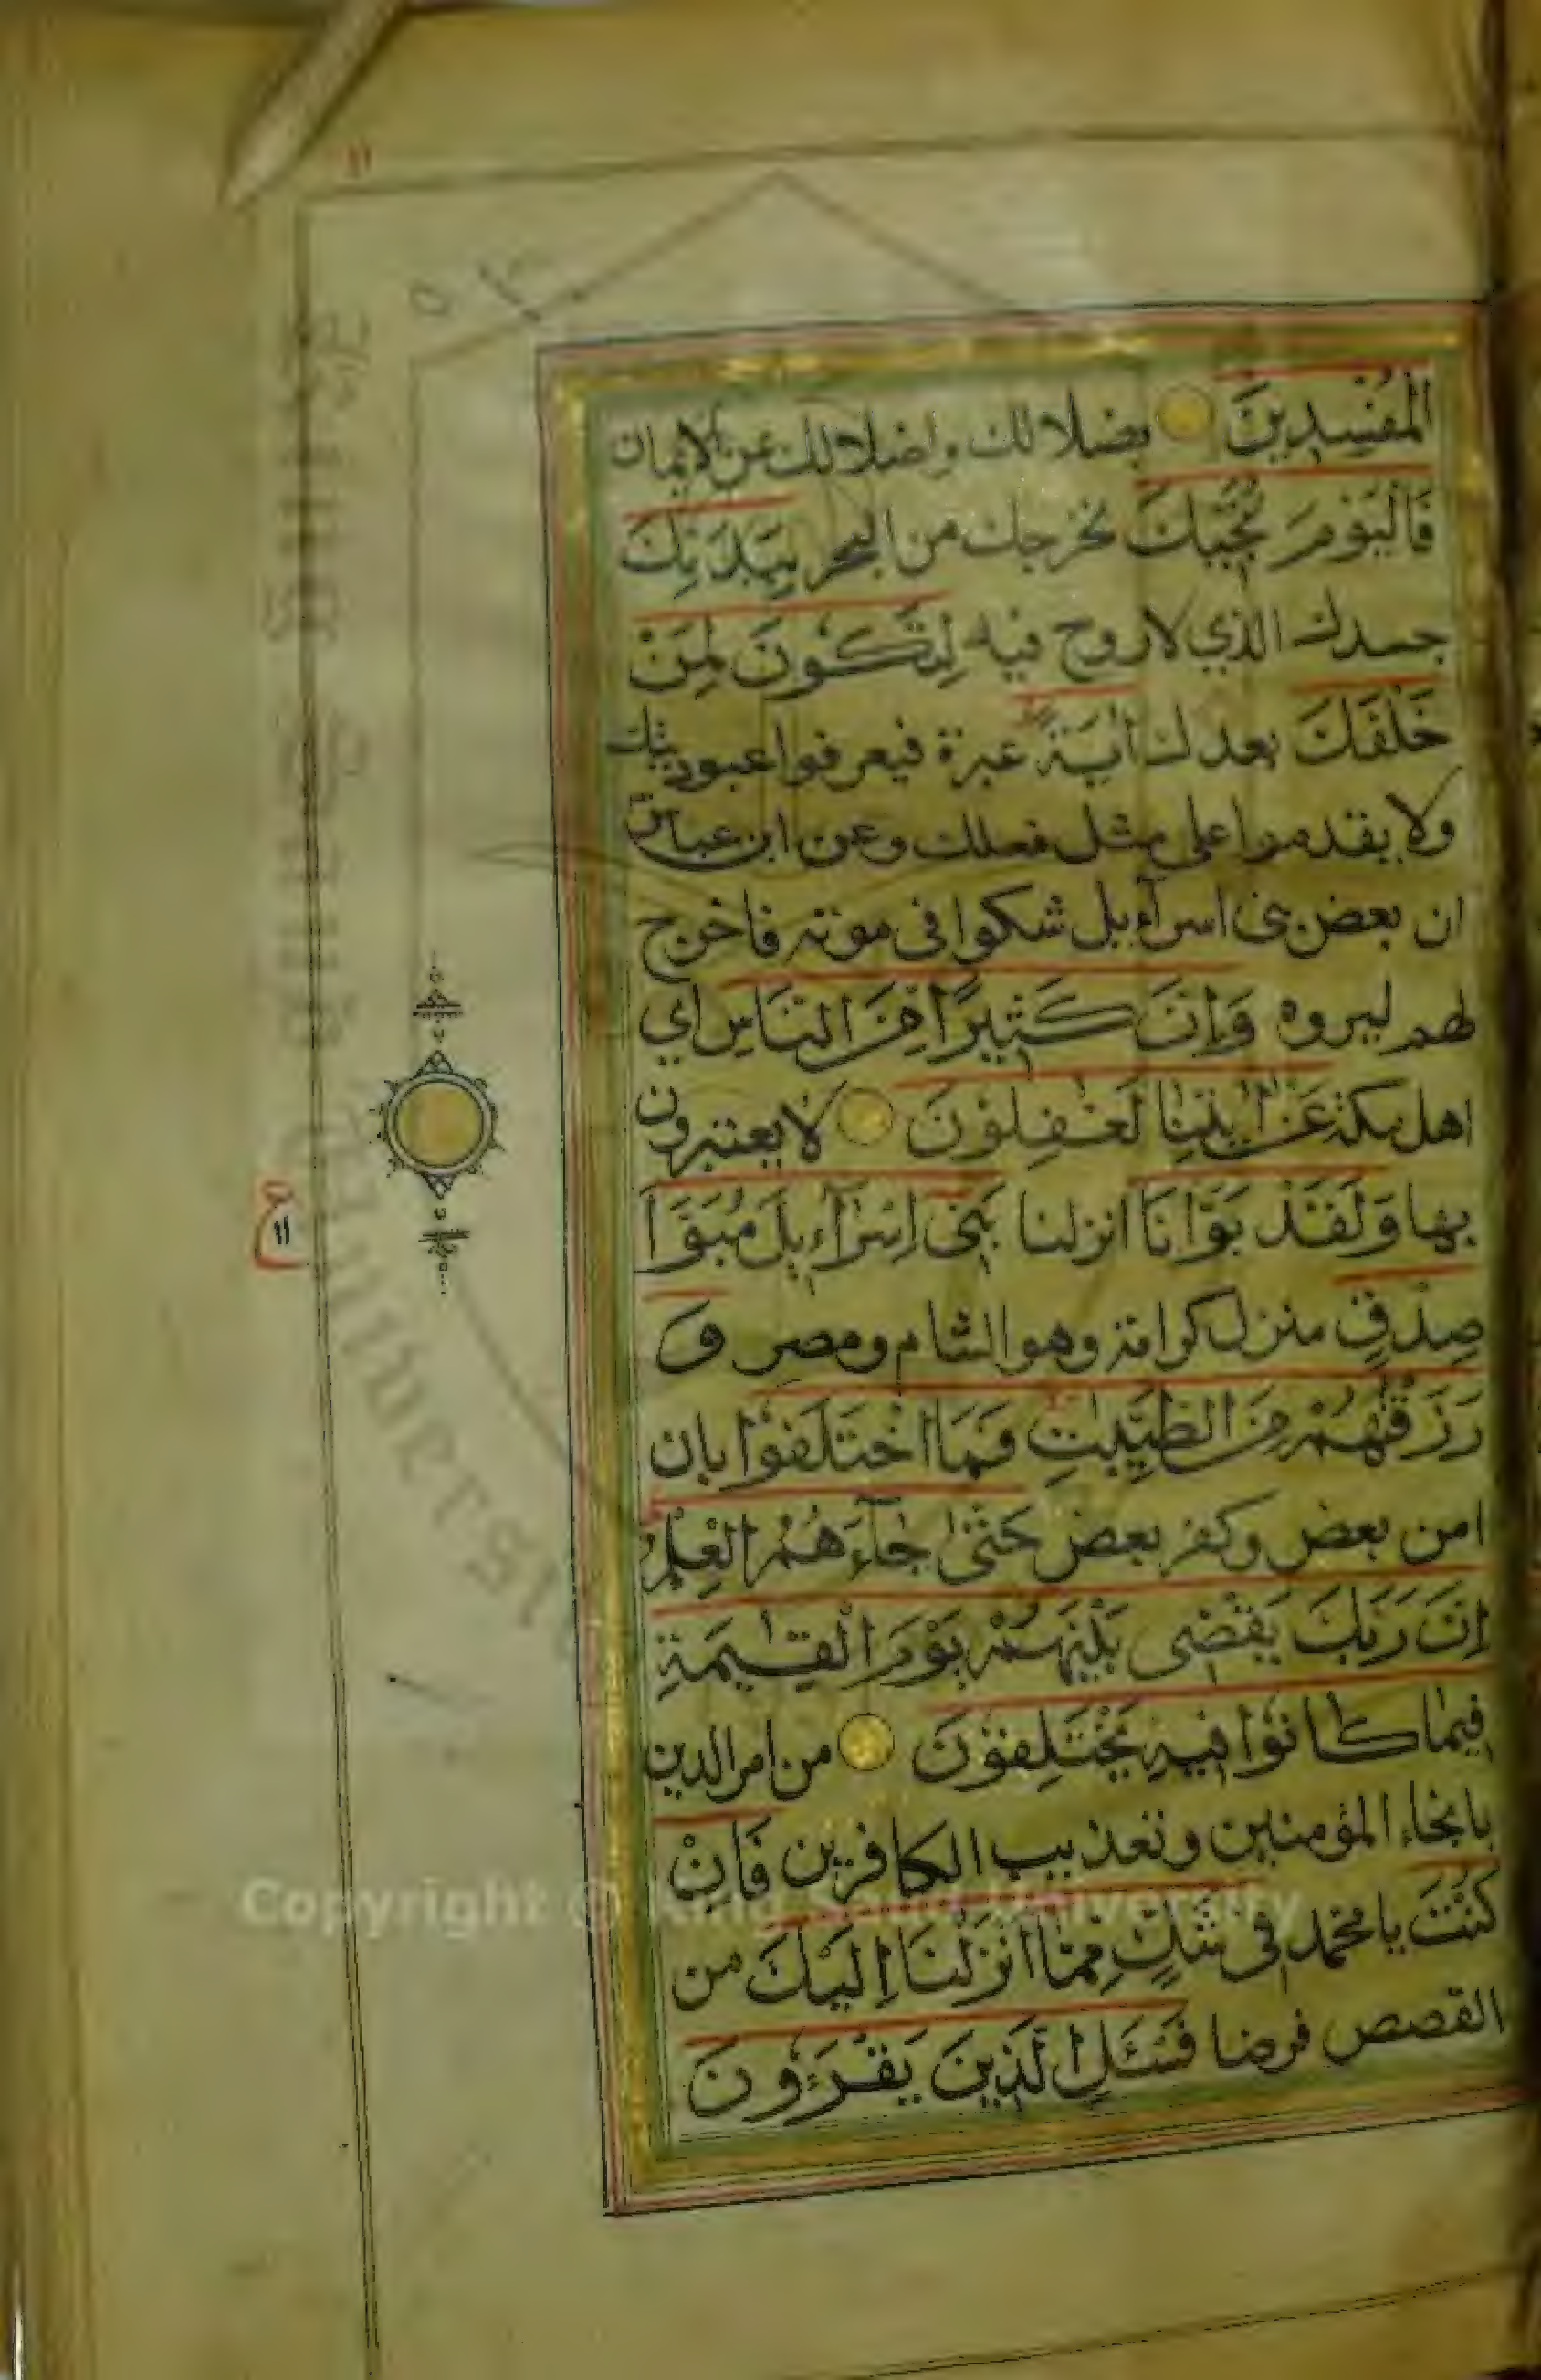 ١١
الْمُفْسِدِينَ بضلالك واضلالك عن الايمان
فَالْيَوْمَ نُنَجِّيكَ نخرجك من البحر بِبَدَنِكَ
جسدك الذي لا روح فيه لِتَكُونَ لِمَنْ
خَلْفَكَ بعدك اٰيَةً عبرة فيعرفوا عبوديتك
ولا يقدموا على مثل فعلك وعن ابن عباس
ان بعض بنى اسرآءيل شكوا فى موته فاخرج
لهم ليروه وَاِنَّ كَثِيرًا مِنَ النَّاسِ اي
اهل مكة عَنْ اٰيٰتِنَا لَغٰفِلُوْنَ لا يعتبرون
بها وَلَقَدْ بَوَّأْنَا انزلنا بَنِى اِسْرَآءِيلَ مُبَوَّاَ
صِدْقٍ منزل كرامة وهو الشام ومصر وَ
رَزَقْنٰهُمْ مِنَ الطَّيِّبٰتِ فَمَا اخْتَلَفُوْا بان
امن بعض وكفر بعض حَتّٰى جَآءَهُمُ الْعِلْمُ
اِنَّ رَبَّكَ يَقْضِى بَيْنَهُمْ يَوْمَ الْقِيٰمَةِ
فِيمَا كَانُوْا فِيهِ يَخْتَلِفُوْنَ من امر الدين
بانجاء المؤمنين وتعذيب الكافرين فَاِنْ
كُنْتَ يا محمد فِى شَكٍّ مِمَّا اَنْزَلْنَا اِلَيْكَ من
القصص فرضا فَسْـَٔلِ الَّذِينَ يَقْرَءُونَ
ع
١١
Copyright © King Saud University